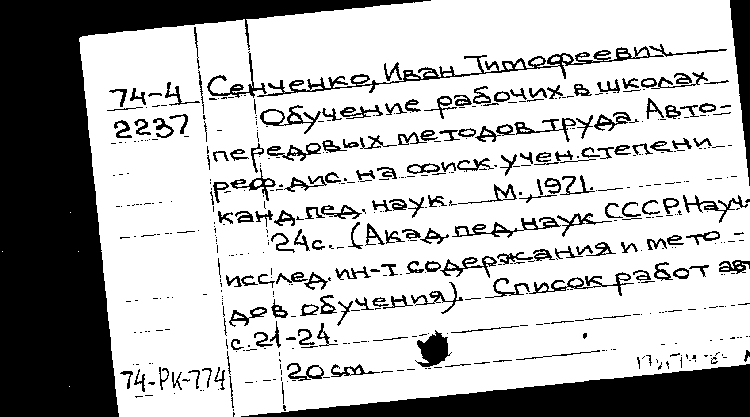 74-4 Сенченко, Иван Тимофеевич.
2237 Обучение рабочих в школах
передовых методов труда. Авто-
реф. дис. на соиск. учен. степени
канд. пед. наук. М., 1971.
24 с. (Акад. пед. наук СССР. Науч.-
исслед. ин-т содержания и мето-
дов обучения). Список работ авт
с. 21-24.
74-РК-774 20 cm.